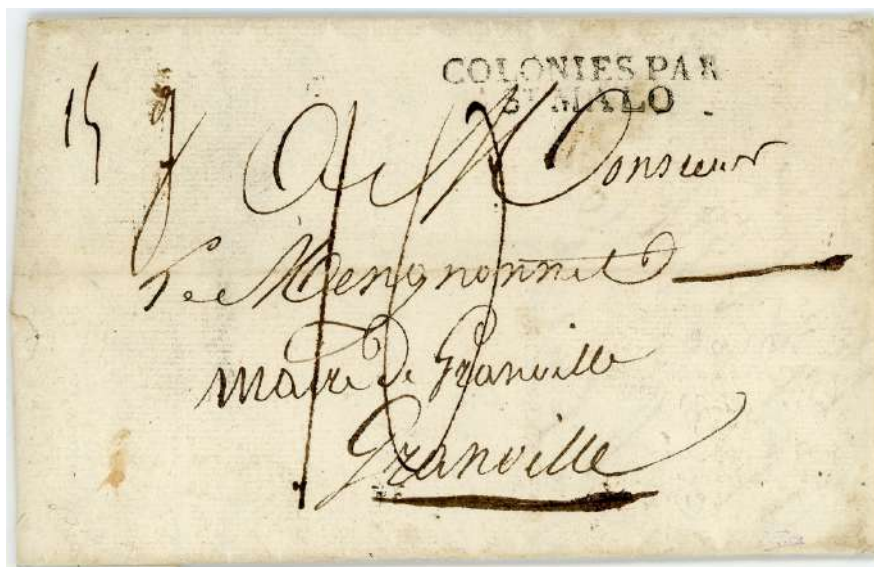 COLONIES PAR
ST MALO
15 g
A Monsieur
Mengnonnet
Maire de Granville
Granville